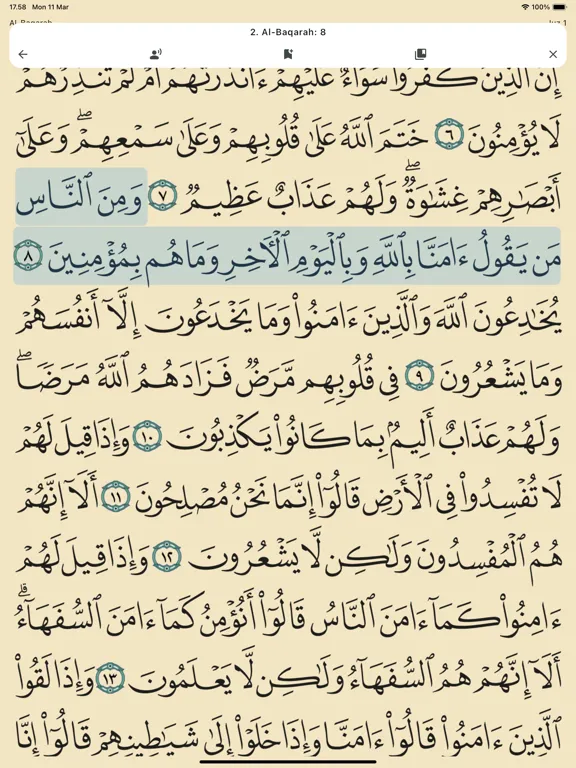 17.58 Mon 11 Mar 100%
2. Al-Baqarah: 8
إِنَّ ٱلَّذِينَ كَفَرُوا۟ سَوَآءٌ عَلَيْهِمْ ءَأَنذَرْتَهُمْ أَمْ لَمْ تُنذِرْهُمْ
لَا يُؤْمِنُونَ ٦ خَتَمَ ٱللَّهُ عَلَىٰ قُلُوبِهِمْ وَعَلَىٰ سَمْعِهِمْ ۖ وَعَلَىٰٓ
أَبْصَٰرِهِمْ غِشَٰوَةٌ ۖ وَلَهُمْ عَذَابٌ عَظِيمٌ ٧ وَمِنَ ٱلنَّاسِ
مَن يَقُولُ ءَامَنَّا بِٱللَّهِ وَبِٱلْيَوْمِ ٱلْءَاخِرِ وَمَا هُم بِمُؤْمِنِينَ ٨
يُخَٰدِعُونَ ٱللَّهَ وَٱلَّذِينَ ءَامَنُوا۟ وَمَا يَخْدَعُونَ إِلَّآ أَنفُسَهُمْ
وَمَا يَشْعُرُونَ ٩ فِى قُلُوبِهِم مَّرَضٌ فَزَادَهُمُ ٱللَّهُ مَرَضًا ۖ
وَلَهُمْ عَذَابٌ أَلِيمٌۢ بِمَا كَانُوا۟ يَكْذِبُونَ ١٠ وَإِذَا قِيلَ لَهُمْ
لَا تُفْسِدُوا۟ فِى ٱلْأَرْضِ قَالُوٓا۟ إِنَّمَا نَحْنُ مُصْلِحُونَ ١١ أَلَآ إِنَّهُمْ
هُمُ ٱلْمُفْسِدُونَ وَلَٰكِن لَّا يَشْعُرُونَ ١٢ وَإِذَا قِيلَ لَهُمْ
ءَامِنُوا۟ كَمَآ ءَامَنَ ٱلنَّاسُ قَالُوٓا۟ أَنُؤْمِنُ كَمَآ ءَامَنَ ٱلسُّفَهَآءُ ۗ
أَلَآ إِنَّهُمْ هُمُ ٱلسُّفَهَآءُ وَلَٰكِن لَّا يَعْلَمُونَ ١٣ وَإِذَا لَقُوا۟
ٱلَّذِينَ ءَامَنُوا۟ قَالُوٓا۟ ءَامَنَّا وَإِذَا خَلَوْا۟ إِلَىٰ شَيَٰطِينِهِمْ قَالُوٓا۟ إِنَّا